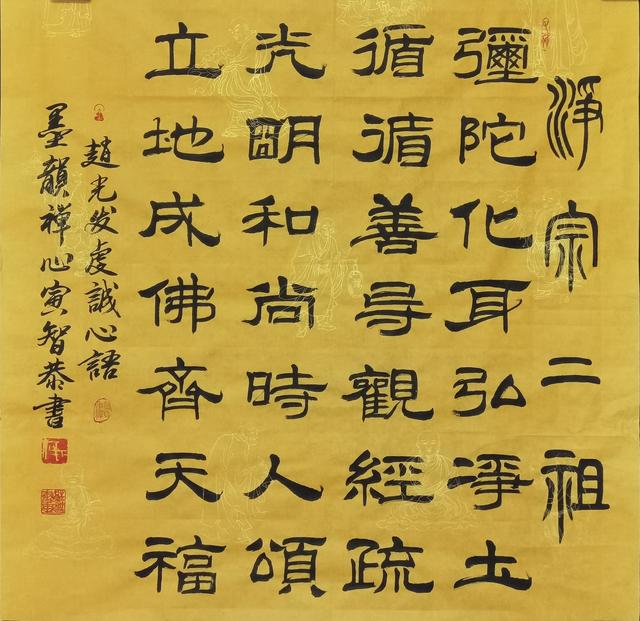 淨宗二祖
彌陀化耳弘淨土
循循善导觀經疏
光明和尚時人頌
立地成佛齊天福
趙光发虔誠心語
墨韻禪心寅智恭書